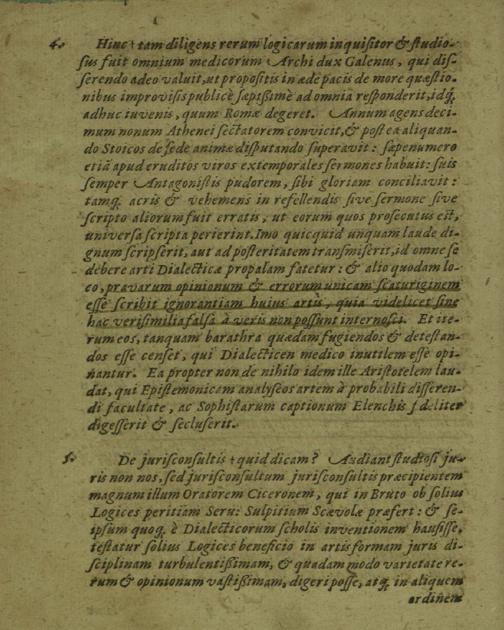 4. Hinc † tam diligens rerum logicarum inquisitor & studio-
sus fuit omnium medicorum Archi dux Galenus, qui dis-
serendo adeo valuit, ut propositis in æde pacis de more quæstio-
nibus improvisis publicè sæpißimè ad omnia responderit, idq́,
adhuc iuvenis, quum Romæ degeret. Annum agens deci-
mum nonum Athenei sectatorem convicit, & post ea aliquan-
do Stoicos de sede animæ disputando superavit: sæpenumero
etiã apud eruditos viros extemporales sermones habuit: suis
semper Antagonistis pudorem, sibi gloriam conciliavit:
tamq́, acris & vehemens in refellendis sive sermone sive
scripto aliorum fuit erratis, ut eorum quos prosecutus est,
universa scripta perierint. Imo quicquid unquam laude di-
gnum scripserit, aut ad posteritatem transmiserit, id omne se
debere arti Dialecticæ propalam fatetur: & alio quodam lo-
co, pravarum opinionum & errorum unicam scaturiginem
esse scribit ignorantiam huius artis, quia videlicet sine
hac verisimilia falsa à veris non possunt internosci. Et ite-
rum eos, tanquam barathra quædam fugiendos & detestan-
dos esse censet, qui Dialecticen medico inutilem esse opi-
nantur. Ea propter non de nihilo idem ille Aristotelem lau-
dat, qui Epistemonicam analyseos artem à probabili disseren-
di facultate, ac Sophistarum captionum Elenchis fideliter
digesserit & secluserit.
5. De jurisconsultis † quid dicam? Audiant studiosi ju-
ris non nos, sed jurisconsultum jurisconsultis præcipientem
magnum illum Oratorem Ciceronem, qui in Bruto ob solius
Logices peritiam Seru: Sulpitium Scævolæ præfert: & se-
ipsum quoq́, è Dialecticorum scholis inventionem hausisse,
testatur solius Logices beneficio in artis formam juris di-
sciplinam turbulentißimam, & quadam modo varietate re-
rum & opinionum vastißimam, digeri posse, atq́, in aliquem
ordinem